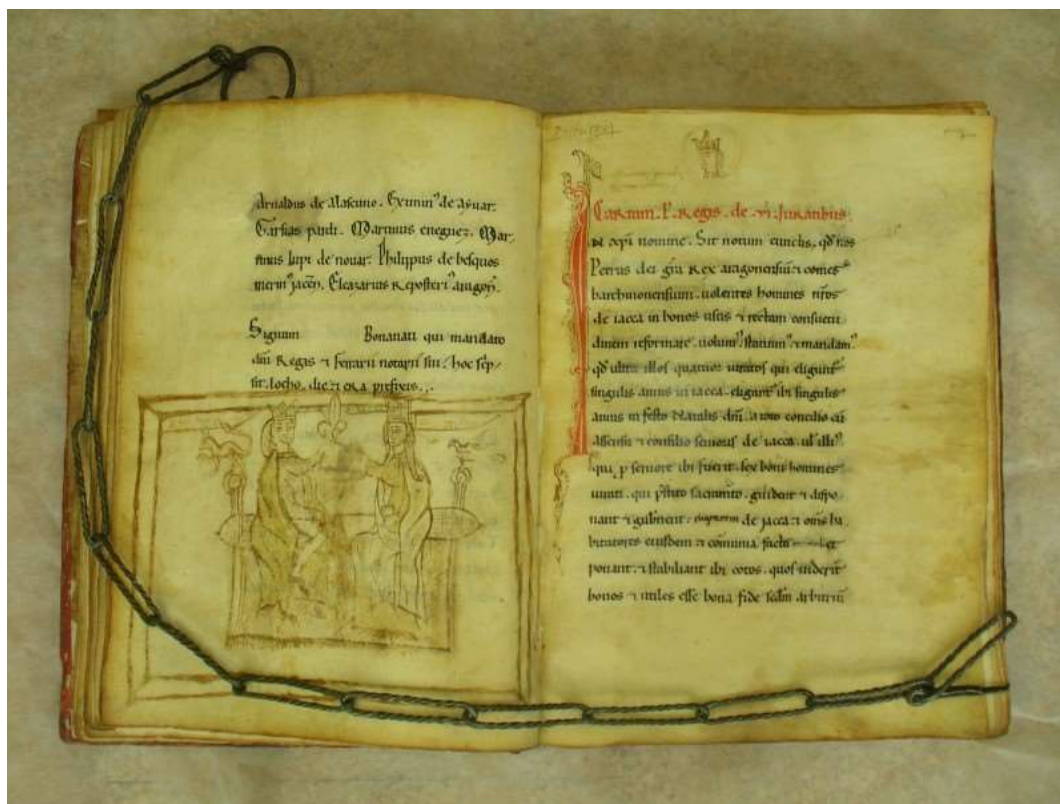 Arnaldus de Alascuno. Eximinꝰ de aẏuar.
Garsias pardi. Martinus enegueȝ. Mar
tinus lupi de nouar. Philippus de besquos
merinꝰ jacceñ. Eleazarius Repositeriꝰ aragoñ.
Signum Bonanati qui mandato
dñi Regis ⁊ ferrarii notarii sui. hoc scͥp
sit. locho. die ⁊ era prefixis.
Cartam. P. Regis. de. vi. Juratibus
N xp̄i nomine. Sit notum cunctis. qđ nos
Petrus dei gr̄a Rex aragonensiũ ⁊ comes
barchinonensium. uolentes homines nr̄os
de iacca in bonos usus ⁊ rectam consuetu
dinem reformare. uolumꝰ. statuimꝰ ⁊ mandamꝰ.
qđ ultra illos quatuor iuratos qui eligunt᷑
singulis annis in iacca. eligant᷑ ibi singulis
annis in festo Natalis dñi. a toto concilio cũ
assensu ⁊ consilio senioris de iacca. ul̓ illiꝰ.
qui ꝓ seniore ibi fuerit. sex boni homines
iurati. qui p̃stito sacram̃to. guident ⁊ dispo
nant ⁊ gub̓nent. de jacca ⁊ om̃s ha
bitatores eiusdem ⁊ cõmunia facta et
ponant. ⁊ stabiliant ibi cotos. quos uiderĩt
bonos ⁊ utiles esse bona fide sc̃dm arbitriũ